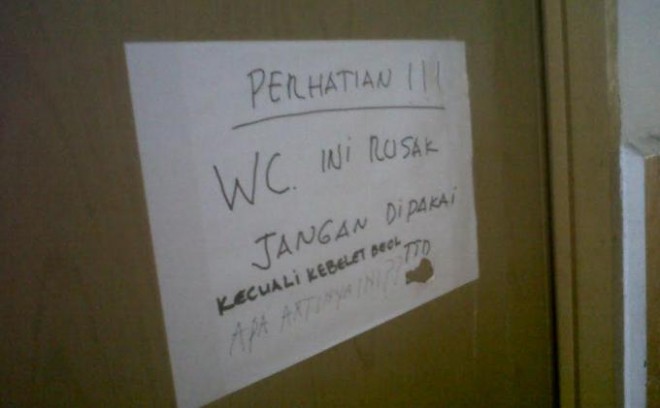 PERHATIAN !!!
WC. INI RUSAK
JANGAN DIPAKAI
KECUALI KEBELET BEOL TTD
APA ARTINYA INI??